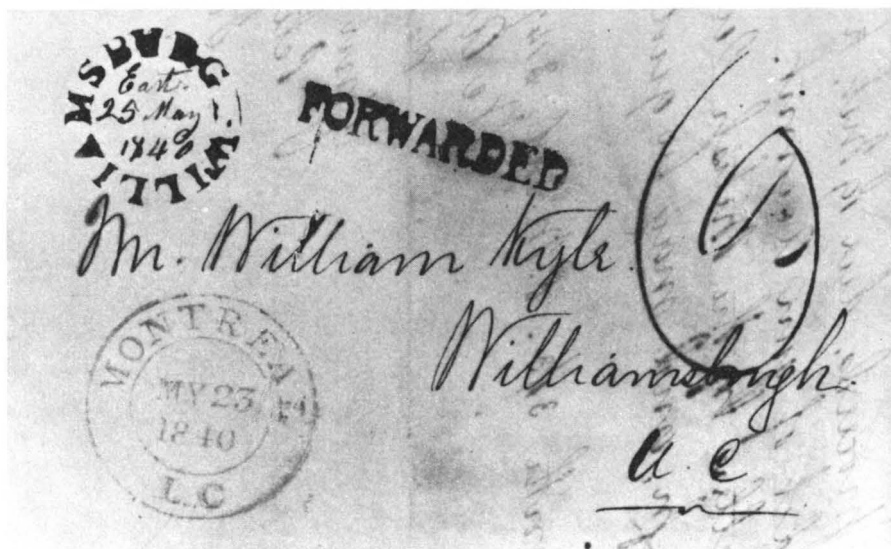 WILLIAMSBURG
East.
25 May
1840
FORWARDED
Mr. William Kyle.
Williamsburgh.
U. C
MONTREAL
MY 23
1840
L.C